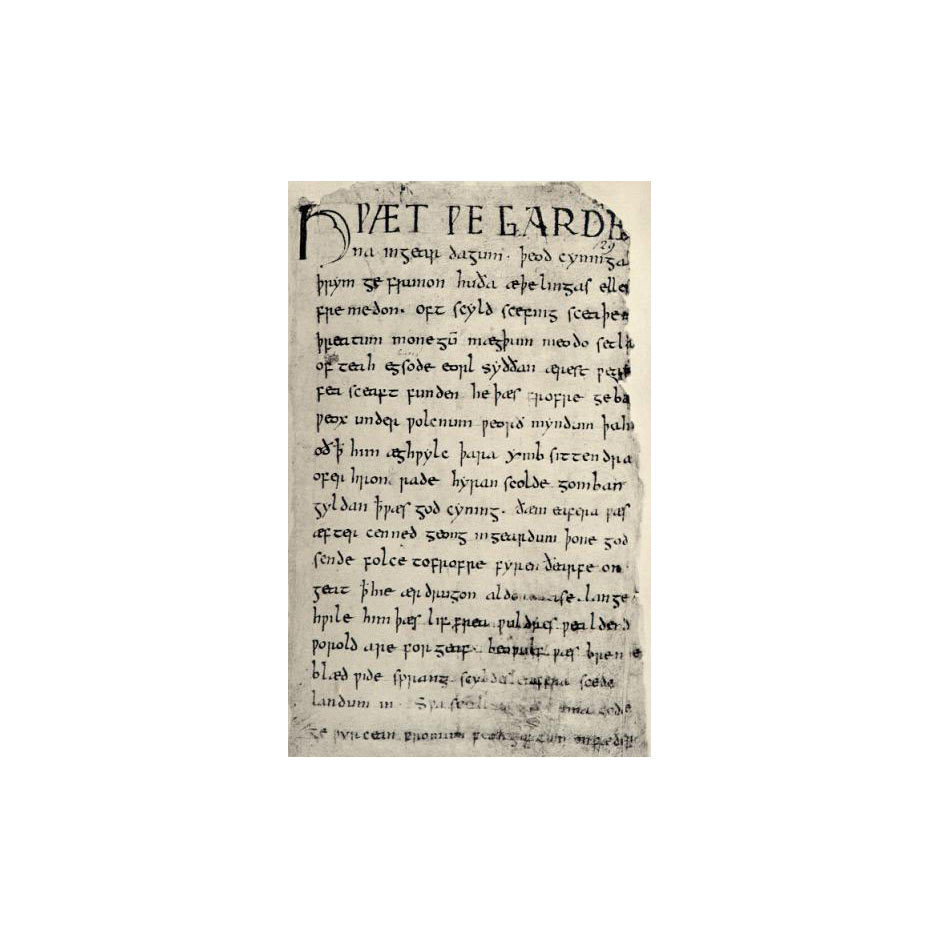 HǷÆT ǷE GARDE
129
na ingear dagum. þeod cyninga
þrym ge frunon huða æþelingas elle
fre medon. oft scyld scefing sceaþe
þreatum monegū mægþum meodo setla
of teah egsode eorl syððan ærest ƿea
fea sceaft funden he þæs frofre geba
ƿeox under ƿolcnum ƿeorð myndum þah
oð ꝥ him æghƿylc þara ymb sittendra
ofer hron rade hyran scolde gomban
gyldan ꝥ ƿæs god cyning. ðæm eafera ƿæs
æfter cenned geong ingeardum þone god
sende folce tofrofre fyren ðearfe on
geat ꝥ hie ær drugon aldor ase. lange
hƿile him þæs lif frea ƿuldres ƿealdend
ƿorold are for geaf. beoƿulf ƿæs breme
blæd ƿide sprang scyldes eafera scede
landum in. Sƿa sc ma gode
ge ƿyrcean fromum feoh giftum